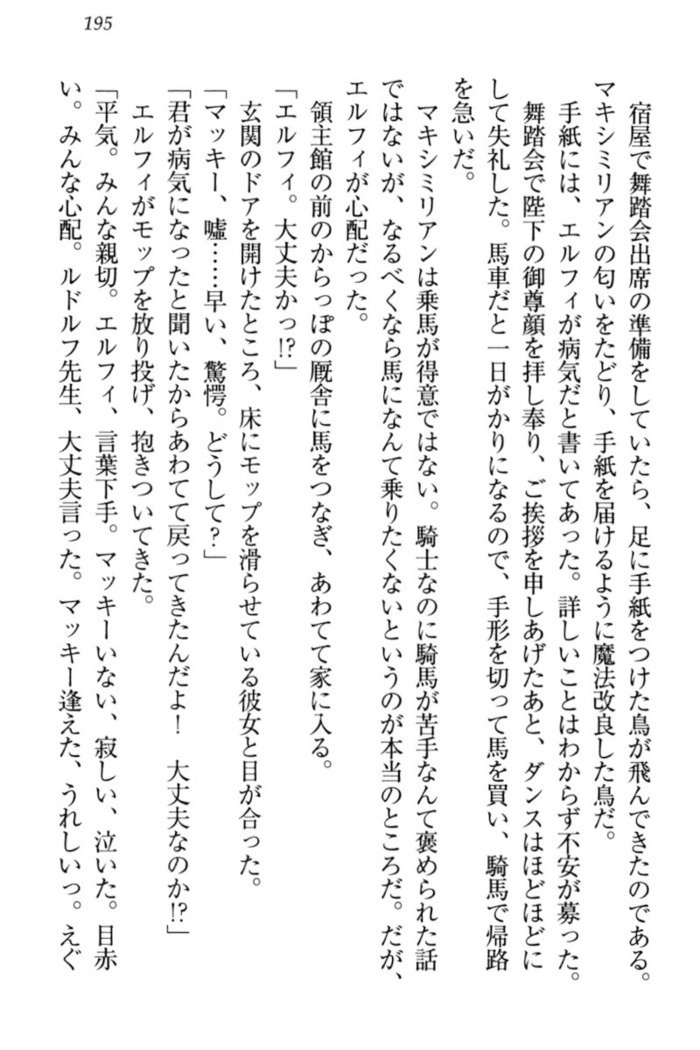 195
宿屋で舞踏会出席の準備をしていたら、足に手紙をつけた鳥が飛んできたのである。
マキシミリアンの匂いをたどり、手紙を届けるように魔法改良した鳥だ。
手紙には、エルフィが病気だと書いてあった。詳しいことはわからず不安が募った。
舞踏会で陛下の御尊顔を拝し奉り、ご挨拶を申しあげたあと、ダンスはほどほどに
して失礼した。馬車だと一日がかりになるので、手形を切って馬を買い、騎馬で帰路
を急いだ。
マキシミリアンは乗馬が得意ではない。騎士なのに騎馬が苦手なんて褒められた話
ではないが、なるべくなら馬になんて乗りたくないというのが本当のところだ。だが、
エルフィが心配だった。
領主館の前のからっぽの厩舎に馬をつなぎ、あわてて家に入る。
「エルフィ。大丈夫かっ!?」
玄関のドアを開けたところ、床にモップを滑らせている彼女と目が合った。
「マッキー、嘘……早い、驚愕。どうして?」
「君が病気になったと聞いたからあわてて戻ってきたんだよ! 大丈夫なのか!?」
エルフィがモップを放り投げ、抱きついてきた。
「平気。みんな親切。エルフィ、言葉下手。マッキーいない、寂しい、泣いた。目赤
い。みんな心配。ルドルフ先生、大丈夫言った。マッキー逢えた、うれしいっ。えぐ